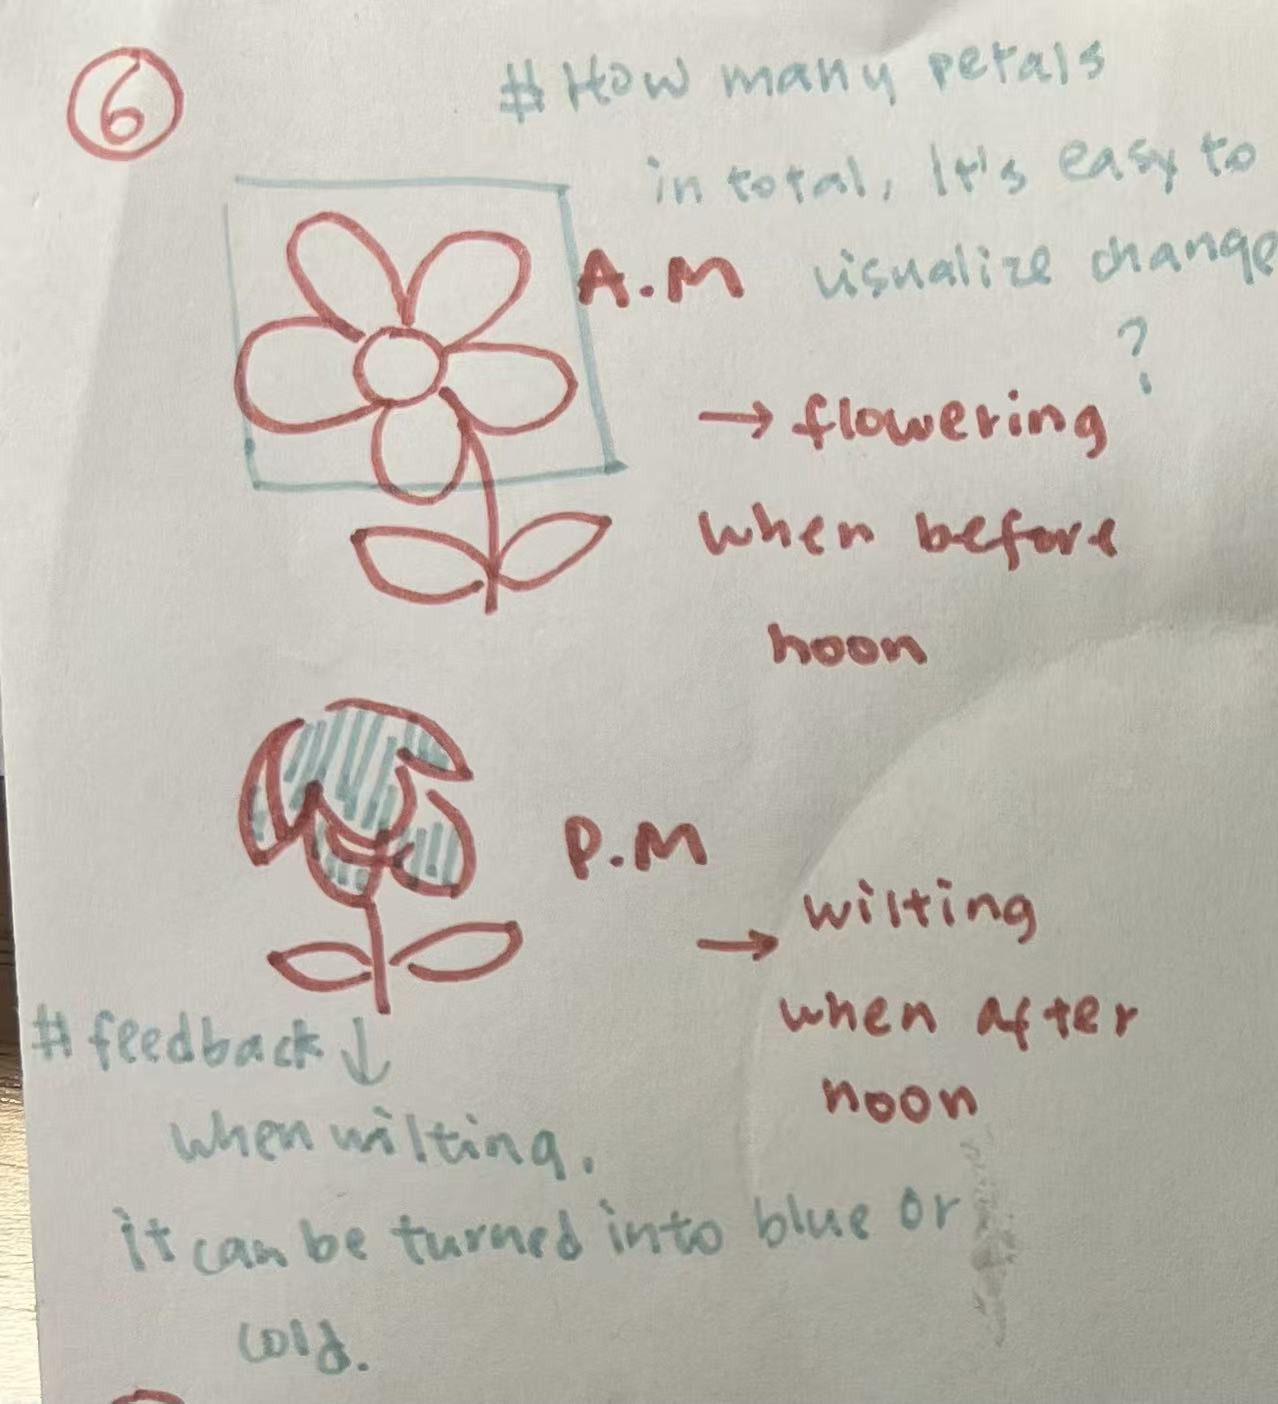 6
# How many petals
in total, It's easy to
A.M visualize change
?
→ flowering
when before
noon
P.M
→ wilting
when after
noon
# feedback ↓
when wilting.
it can be turned into blue or
cold.